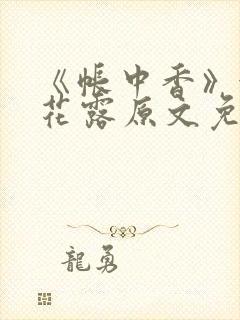 《帐中香》
花露原文免
龍勇